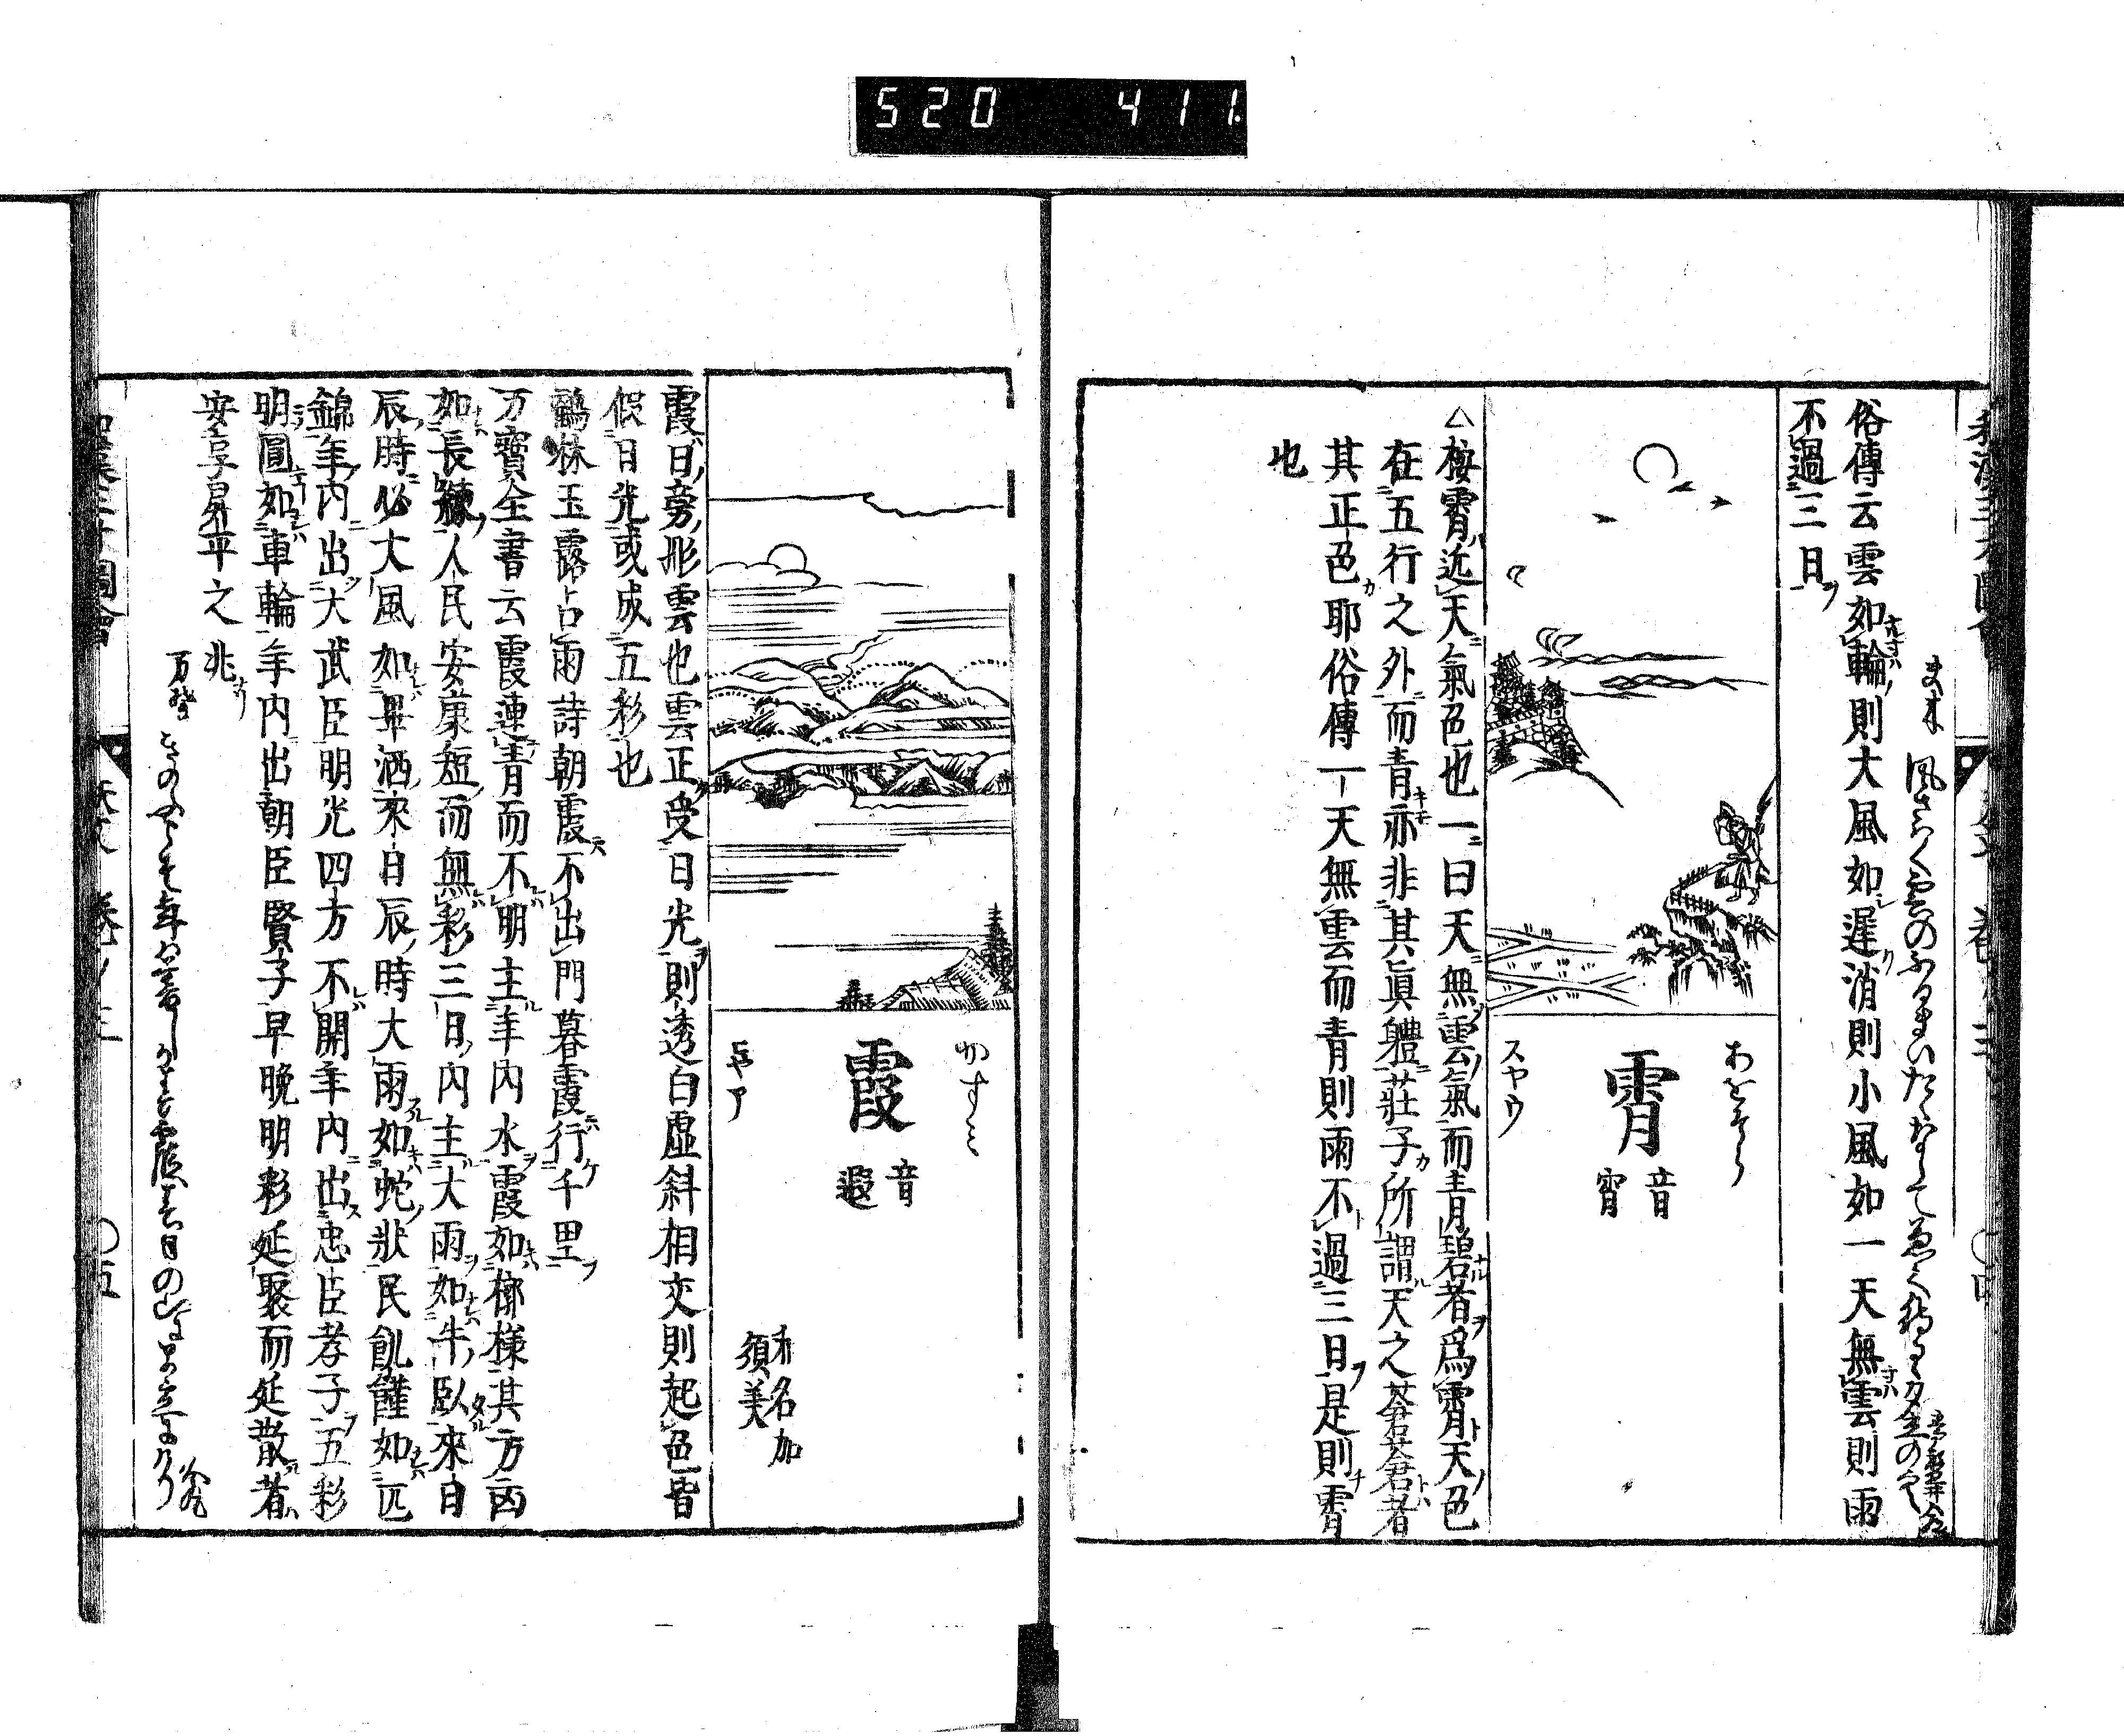 520 411.
風さはく雲のふるまいたゝならて
俗傳云雲如輪則大風如遲消則小風如一天無雲則雨
不過三日
あをそら
霄
音
宵
スヤウ
△按霄近天氣色也一曰天無雲氣而青碧者爲霄天色
在五行之外而青亦非其眞軆莊子所謂天之蒼蒼者
其正色耶俗傳一天無雲而青則雨不過三日是則霄
也
かすミ
霞
音
遐
ヒヤア
和名加
須美
霞日旁形雲也雲正受日光則透白虛斜相交則起色皆
假日光或成五彩也
鶴林玉露占雨詩朝霞不出門暮霞行千里
万寶全書云霞連青而不明主年内水霞如榔樣其方凶
如長練人民安康短而無彩三日内主大雨如牛臥來日
辰時必大風如畢洒來日辰時大雨如蛇狀民飢饉如匹
錦年内出大武臣明光四方不開年内出忠臣孝子五彩
明圓如車輪年内出朝臣賢子早晚明彩延聚而延散者
安享昇平之兆
万葉